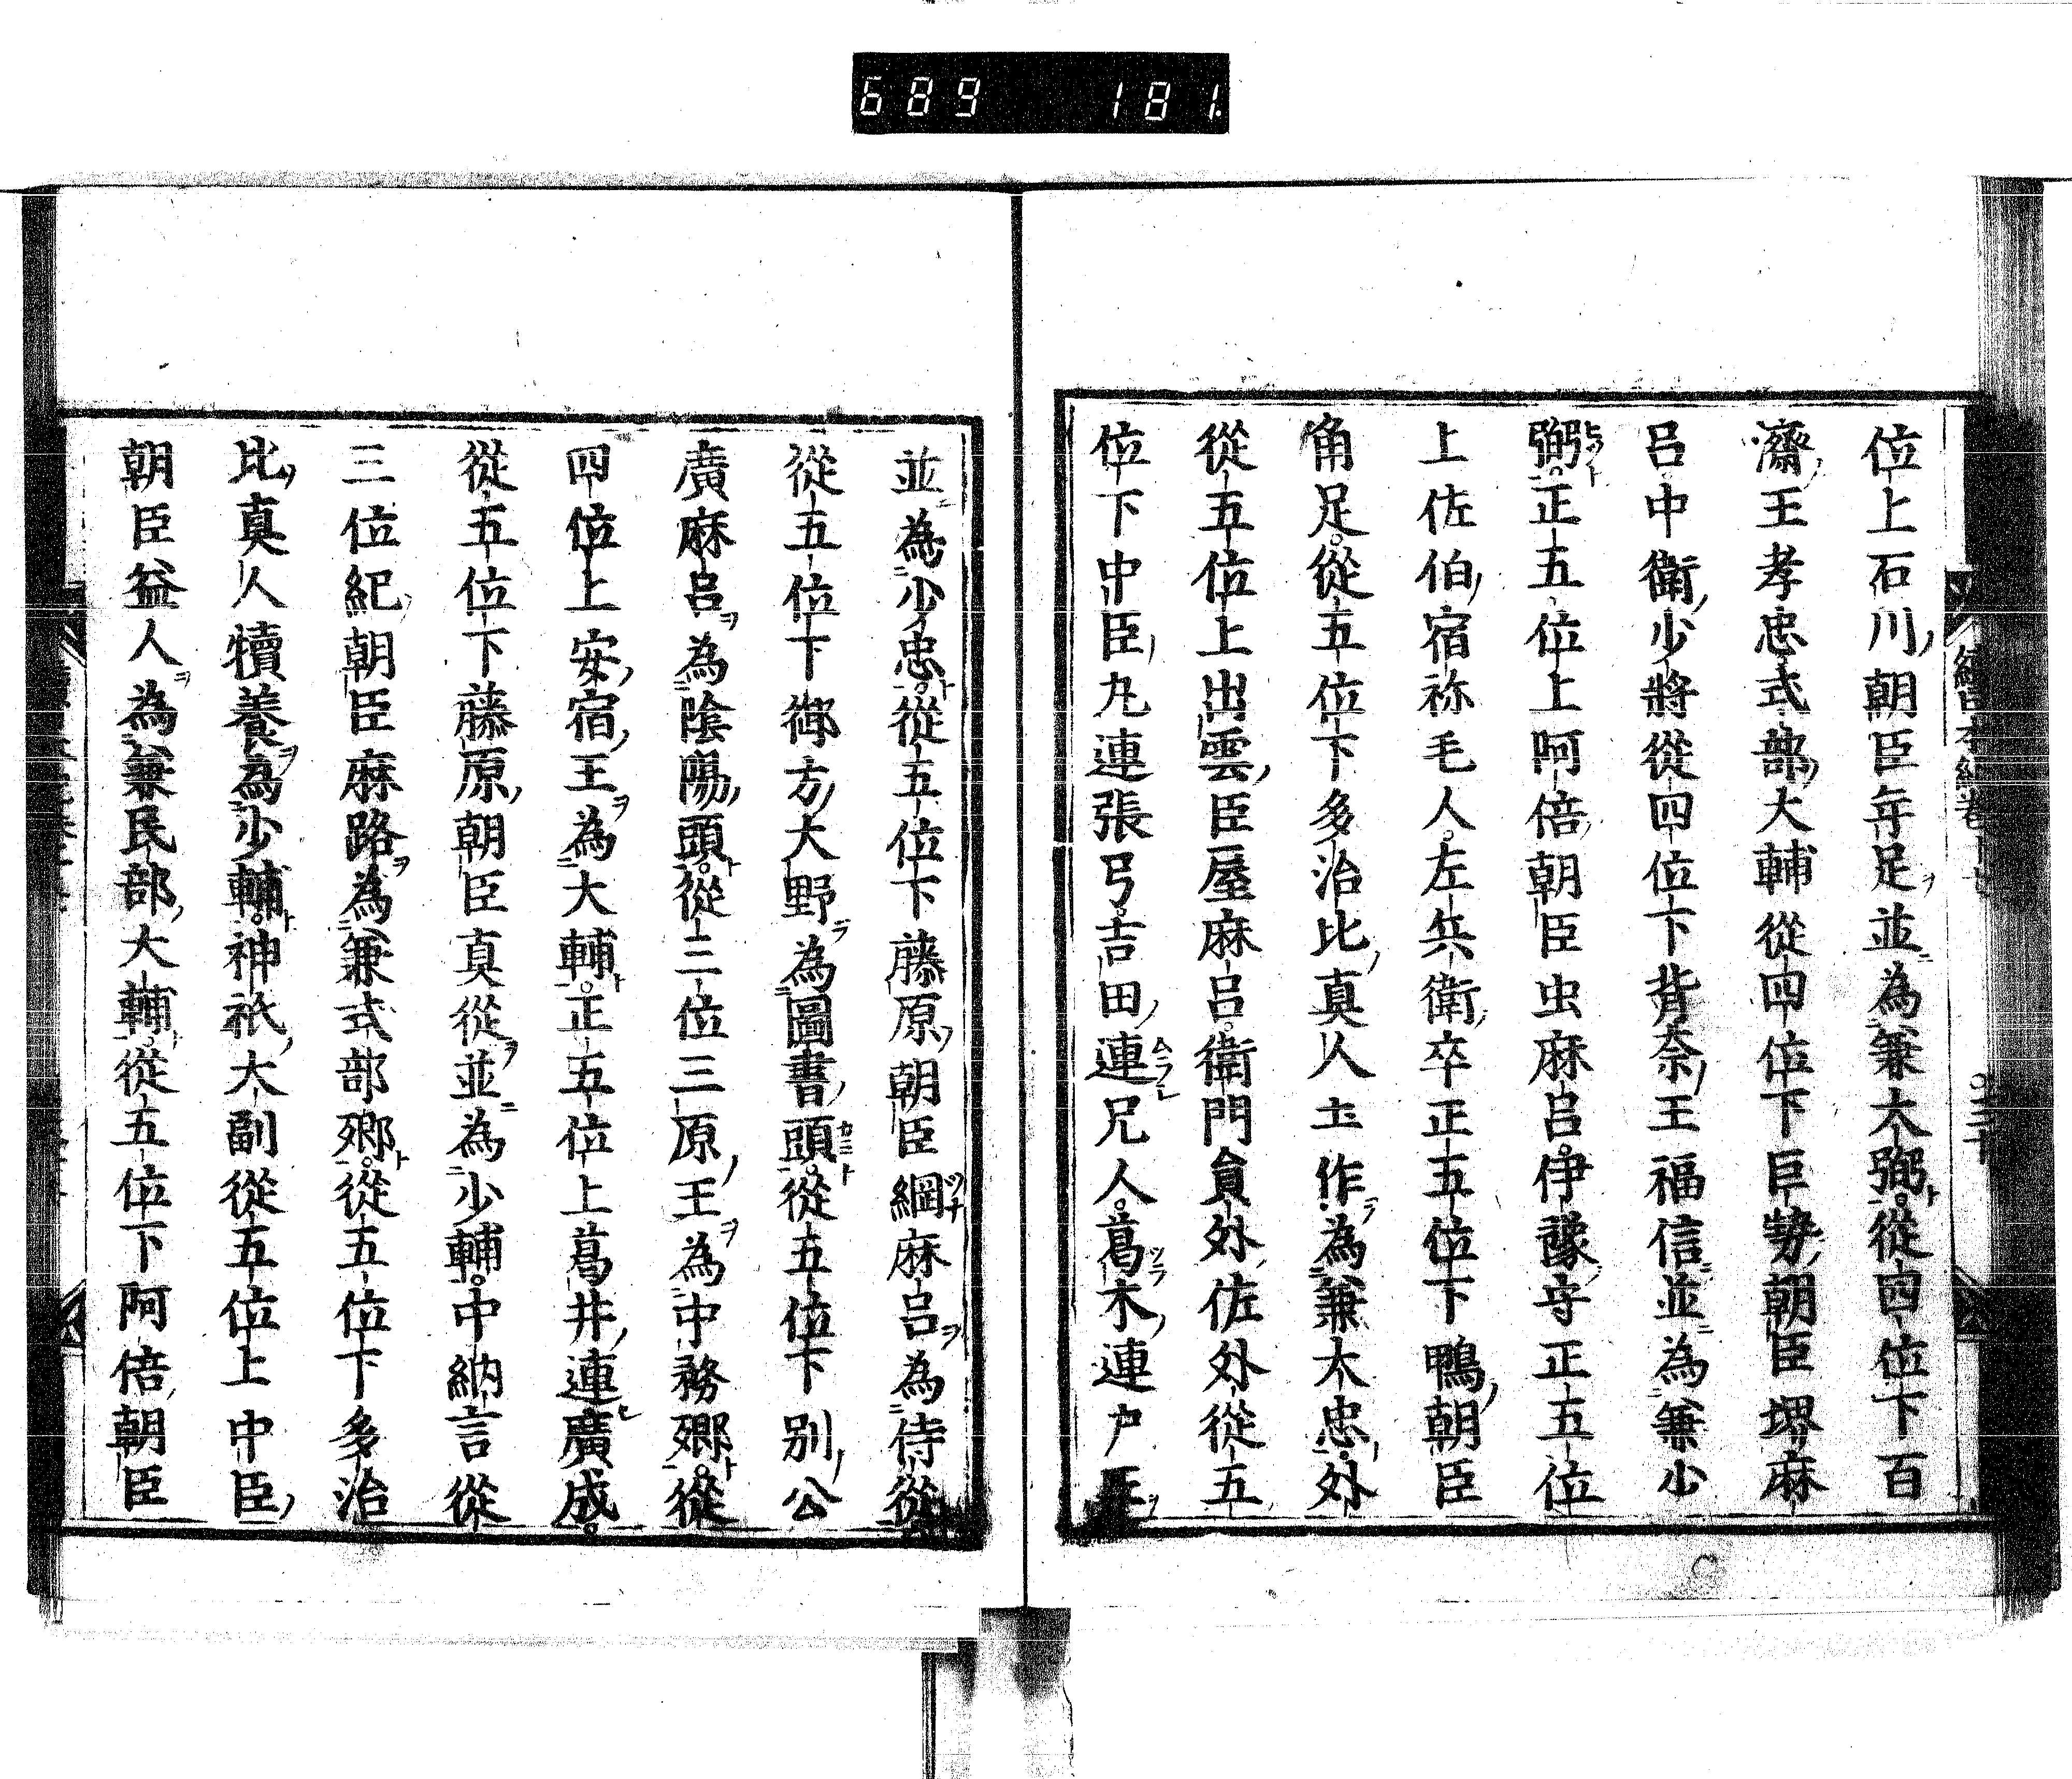 689 181
位上石川朝臣年足並為兼大弼從四位下百
濟王孝忠式部大輔從四位下巨勢朝臣堺麻
呂中衛少將從四位下背奈王福信並為兼少
弼正五位上阿倍朝臣虫麻呂伊豫守正五位
上佐伯宿祢毛人左兵衛率正五位下鴨朝臣
角足從五位下多治比真人土作為兼大忠外
從五位上出雲臣屋麻呂衛門員外佐外從五
位下中臣丸連張弓吉田連兄人葛木連戶主
並為少忠從五位下藤原朝臣綱麻呂為侍從
從五位下御方大野為圖書頭從五位下別公
廣麻呂為陰陽頭從三位三原王為中務卿從
四位上安宿王為大輔正五位上葛井連廣成
從五位下藤原朝臣真從並為少輔中納言從
三位紀朝臣麻路為兼式部卿從五位下多治
比真人犢養為少輔神祇大副從五位上中臣
朝臣益人為兼民部大輔從五位下阿倍朝臣